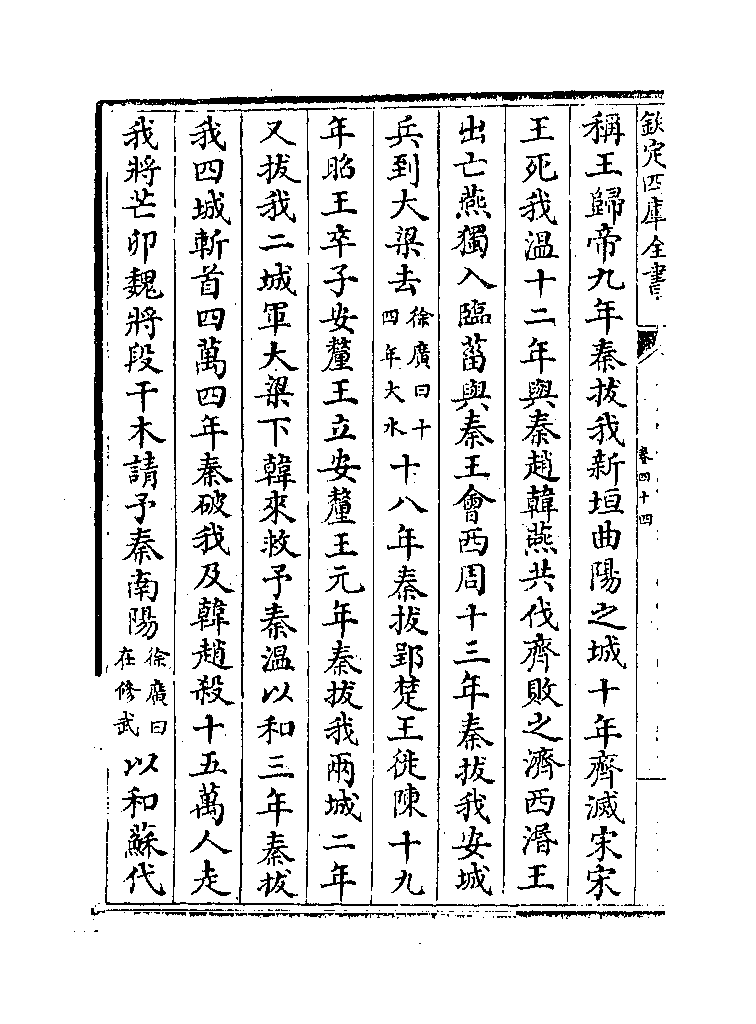 欽定四庫全書
卷四十四
稱王歸帝九年秦拔我新垣曲陽之城十年齊滅宋宋
王死我溫十二年與秦趙韓燕共伐齊敗之濟西湣王
出亡燕獨入臨菑與秦王會西周十三年秦拔我安城
兵到大梁去徐廣曰十四年大水十八年秦拔郢楚王徙陳十九
年昭王卒子安釐王立安釐王元年秦拔我兩城二年
又拔我二城軍大梁下韓來救予秦溫以和三年秦拔
我四城斬首四萬四年秦破我及韓趙殺十五萬人走
我將芒卯魏將段干木請予秦南陽徐廣曰在修武以和蘇代